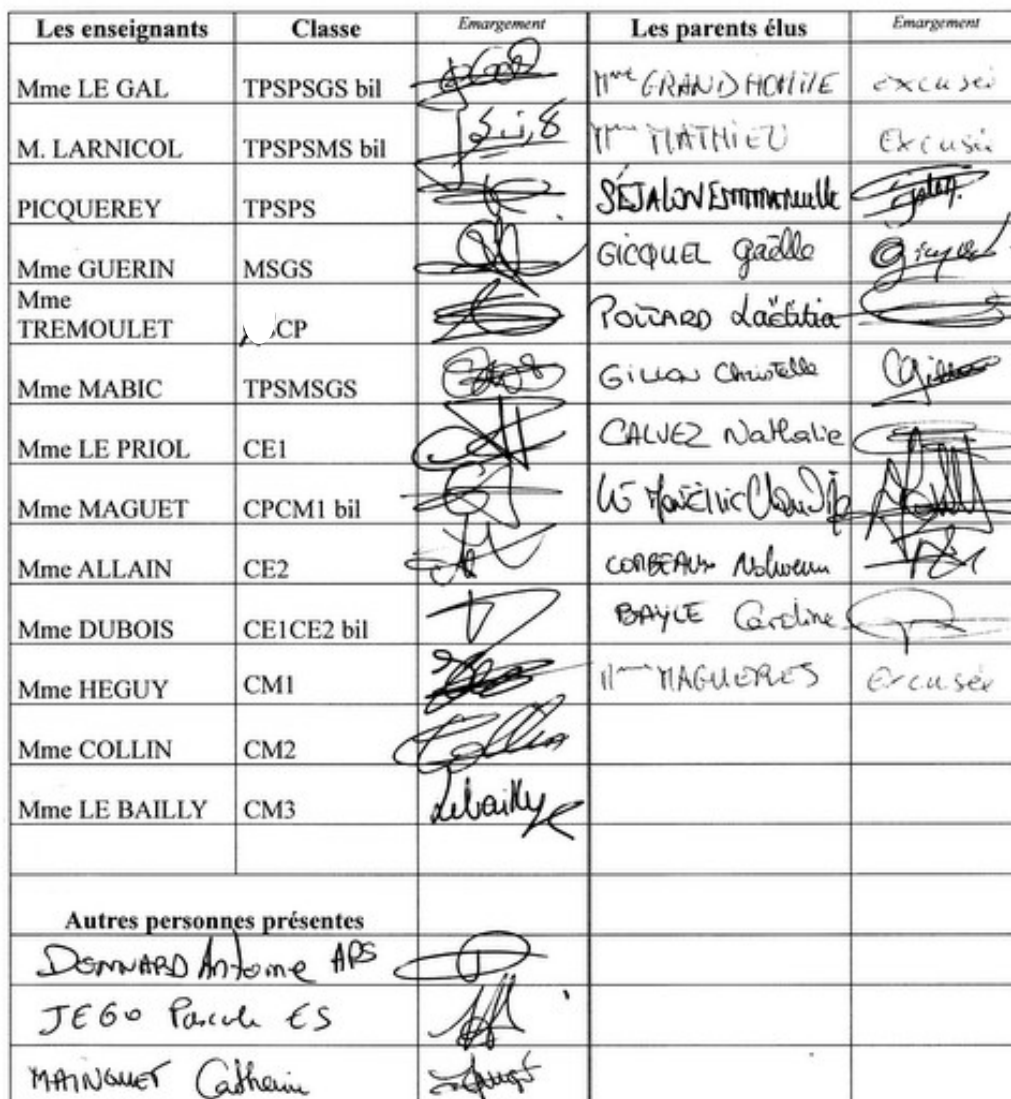 Les enseignants Classe Emargement Les parents élus Emargement
Mme LE GAL TPSPSGS bil Mme GRANDHOMME excusée
M. LARNICOL TPSPSMS bil Mme MATHIEU Excusée
PICQUEREY TPSPS SÉJALON EMMANUELLE
Mme GUERIN MSGS GICQUEL Gaëlle
Mme
TREMOULET CP Laëtitia
Mme MABIC TPSMSGS GILLON Christelle
Mme LE PRIOL CE1 CALVEZ Nathalie
Mme MAGUET CPCM1 bil
Mme ALLAIN CE2 CORBEAUX Nolwenn
Mme DUBOIS CE1CE2 bil BAYLE Caroline
Mme HEGUY CM1 Mme MAGUERES Excusée
Mme COLLIN CM2 Collin
Mme LE BAILLY CM3 Lebailly
Autres personnes présentes
DONNARD Antoine APS
JEGO Pascale ES
MAINGUET Catherine